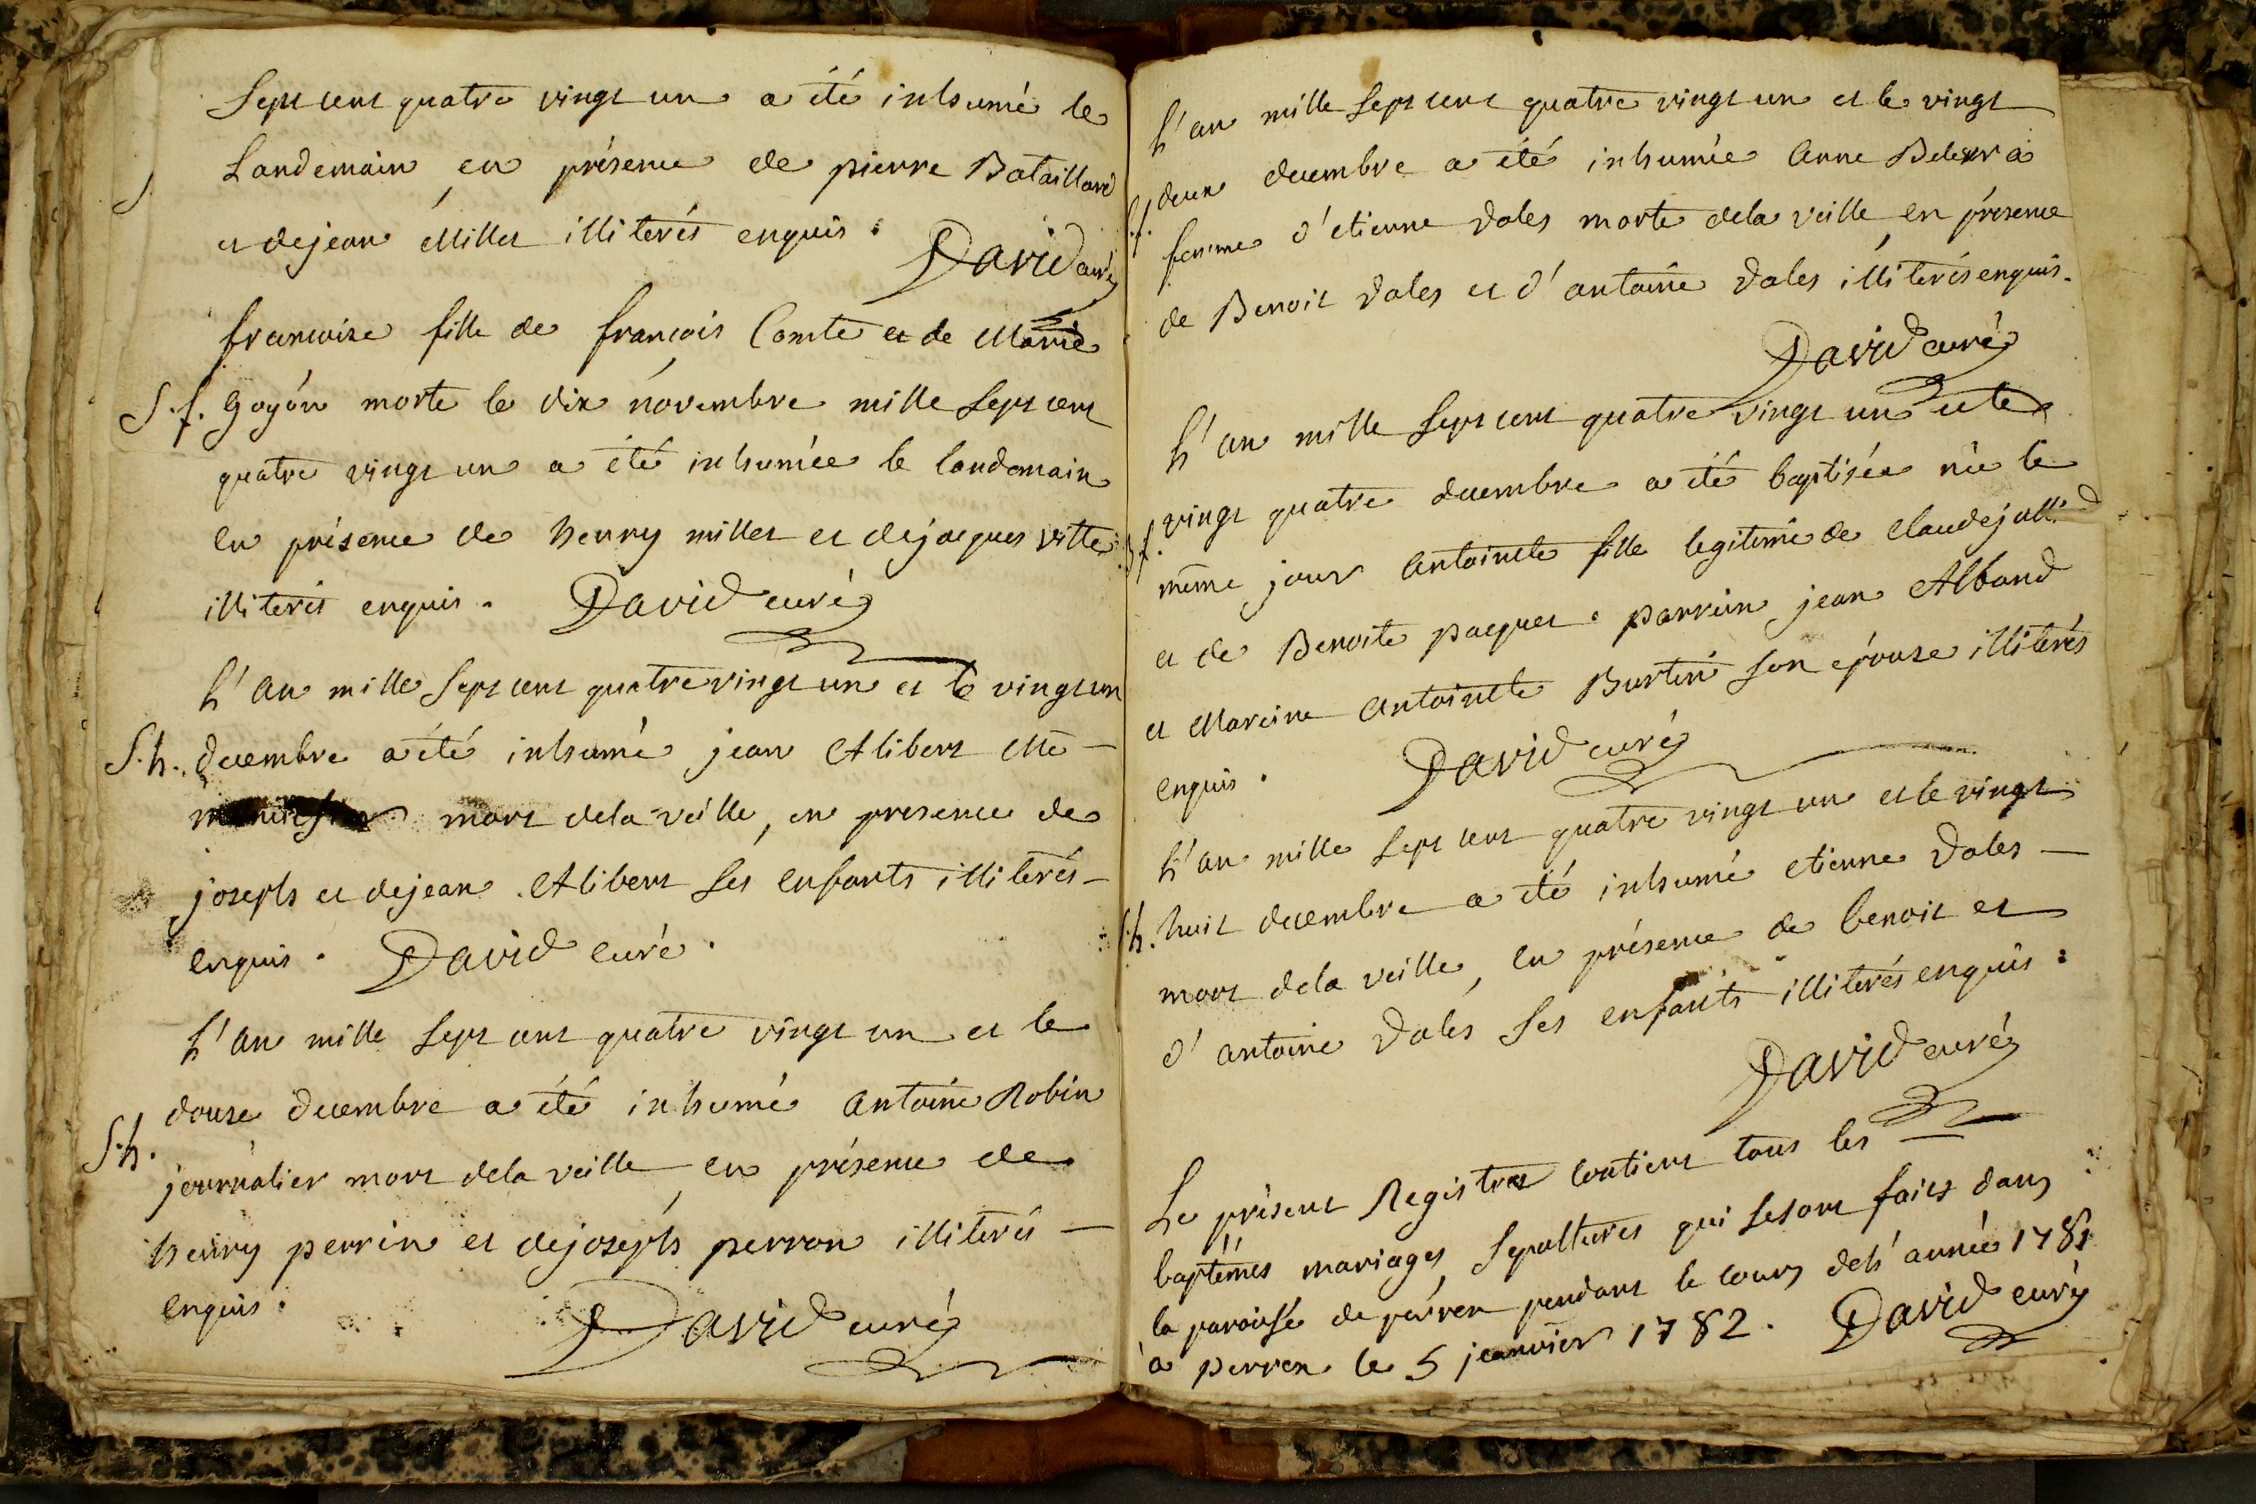 Sept cent quatre vingt un a été inhumé le
Landemain en présence de pierre Bataillard
et de jean Millet illiterés enquis. David curé
francoise fille de françois Comte et de Marie
S.f. Goyon morte le dix novembre mille Sept cent
quatre vingt un a été inhumée le landemain
en présence de henry millet et de jacques vitte
illiterés enquis. David curé
L'an mille Sept cent quatre vingt un et le vingt un
S.h. decembre a été inhumé jean Alibert
mort dela veille, en presence de
joseph et de jean Alibert Ses enfants illiterés
enquis. David curé.
L'an mille Sept cent quatre vingt un et le
douze decembre a été inhumé antoine Robin
S.h. journalier mort dela veille, en présence de
henry perrin et de joseph perron illiterés
enquis. David curé
L'an mille Sept cent quatre vingt un et le vingt
S.f. deux decembre a été inhumée anne
femme d'etienne Dales morte dela veille en présence
de Benoit Dales et d'antoine Dales illiterés enquis.
David curé
L'an mille Sept cent quatre vingt un et le
vingt quatre decembre a été baptisée née le
B.f. même jour antoinette fille legitime de Claude
et de Benoite paquet. parrein jean Alband
et Mareine antoinette Burtin son epouse illiterés
enquis. David curé
L'an mille Sept cent quatre vingt un et le vingt
S.h. huit decembre a été inhumé etienne Dales
mort dela veille, en présence de benoit et
d'antoine Dales Ses enfants illiterés enquis.
David curé
Le présent Registre contient tous les
baptêmes mariages, Sepultures qui se sont faits dans
la paroisse de perrex pendant le cours del'année 1781
à perrex le 5 jeanvier 1782. David curé